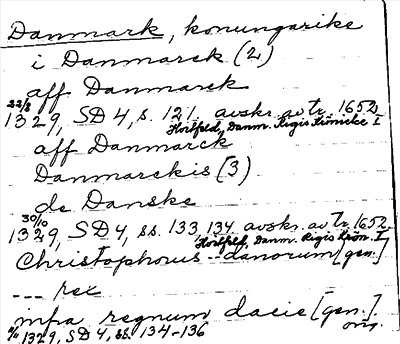 Danmark, konungarike
i Danmarck (2)
aff Danmarck
22/8 1329, SD 4, s. 121 avskr. av tr. 1652
Hvitfeld, Danm. Rigis Krönicke I
aff Danmarck
Danmarckis (3)
de Danske
30/10 1329, SD 4, ss. 133, 134 avskr. av tr. 1652
Hvitfeld, Danm. Rigis Krön. I
Christophorus -- danorum [gen.]
--- rex
infra regnum dacie [gen.]
1329, SD 4, ss. 134-136 orig.